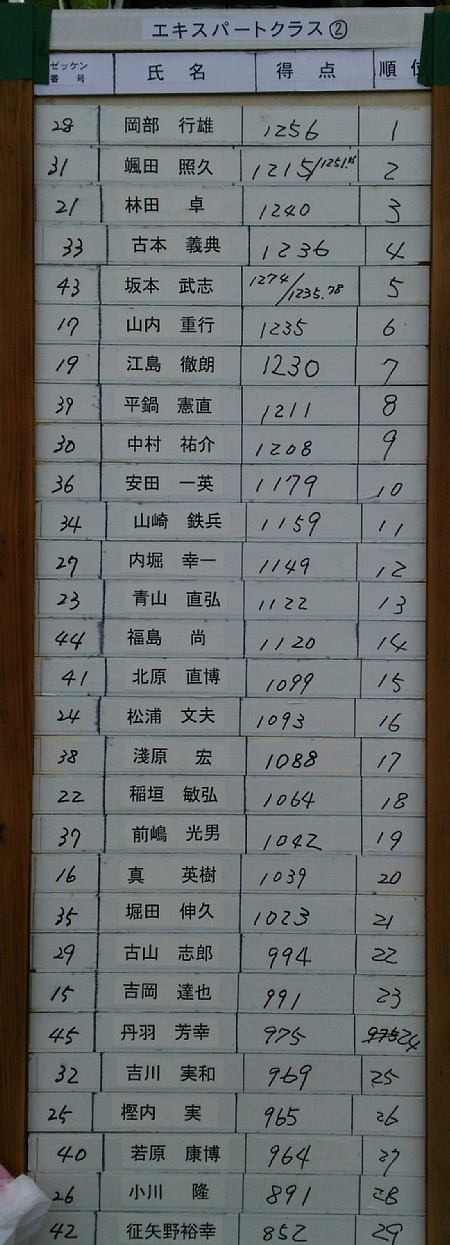 エキスパートクラス②
ゼッケン番号 氏名 得点 順位
28 岡部 行雄 1256 1
31 颯田 照久 1215/1251.15 2
21 林田 卓 1240 3
33 古本 義典 1236 4
43 坂本 武志 1274/1235.78 5
17 山内 重行 1235 6
19 江島 徹朗 1230 7
39 平鍋 憲直 1211 8
30 中村 祐介 1208 9
36 安田 一英 1179 10
34 山崎 鉄兵 1159 11
27 内堀 幸一 1149 12
23 青山 直弘 1122 13
44 福島 尚 1120 14
41 北原 直博 1099 15
24 松浦 文夫 1093 16
38 淺原 宏 1088 17
22 稲垣 敏弘 1064 18
37 前嶋 光男 1042 19
16 真 英樹 1039 20
35 堀田 伸久 1023 21
29 古山 志郎 994 22
15 吉岡 達也 991 23
45 丹羽 芳幸 975 24
32 吉川 実和 969 25
25 樫内 実 965 26
40 若原 康博 964 27
26 小川 隆 891 28
42 征矢野裕幸 852 29